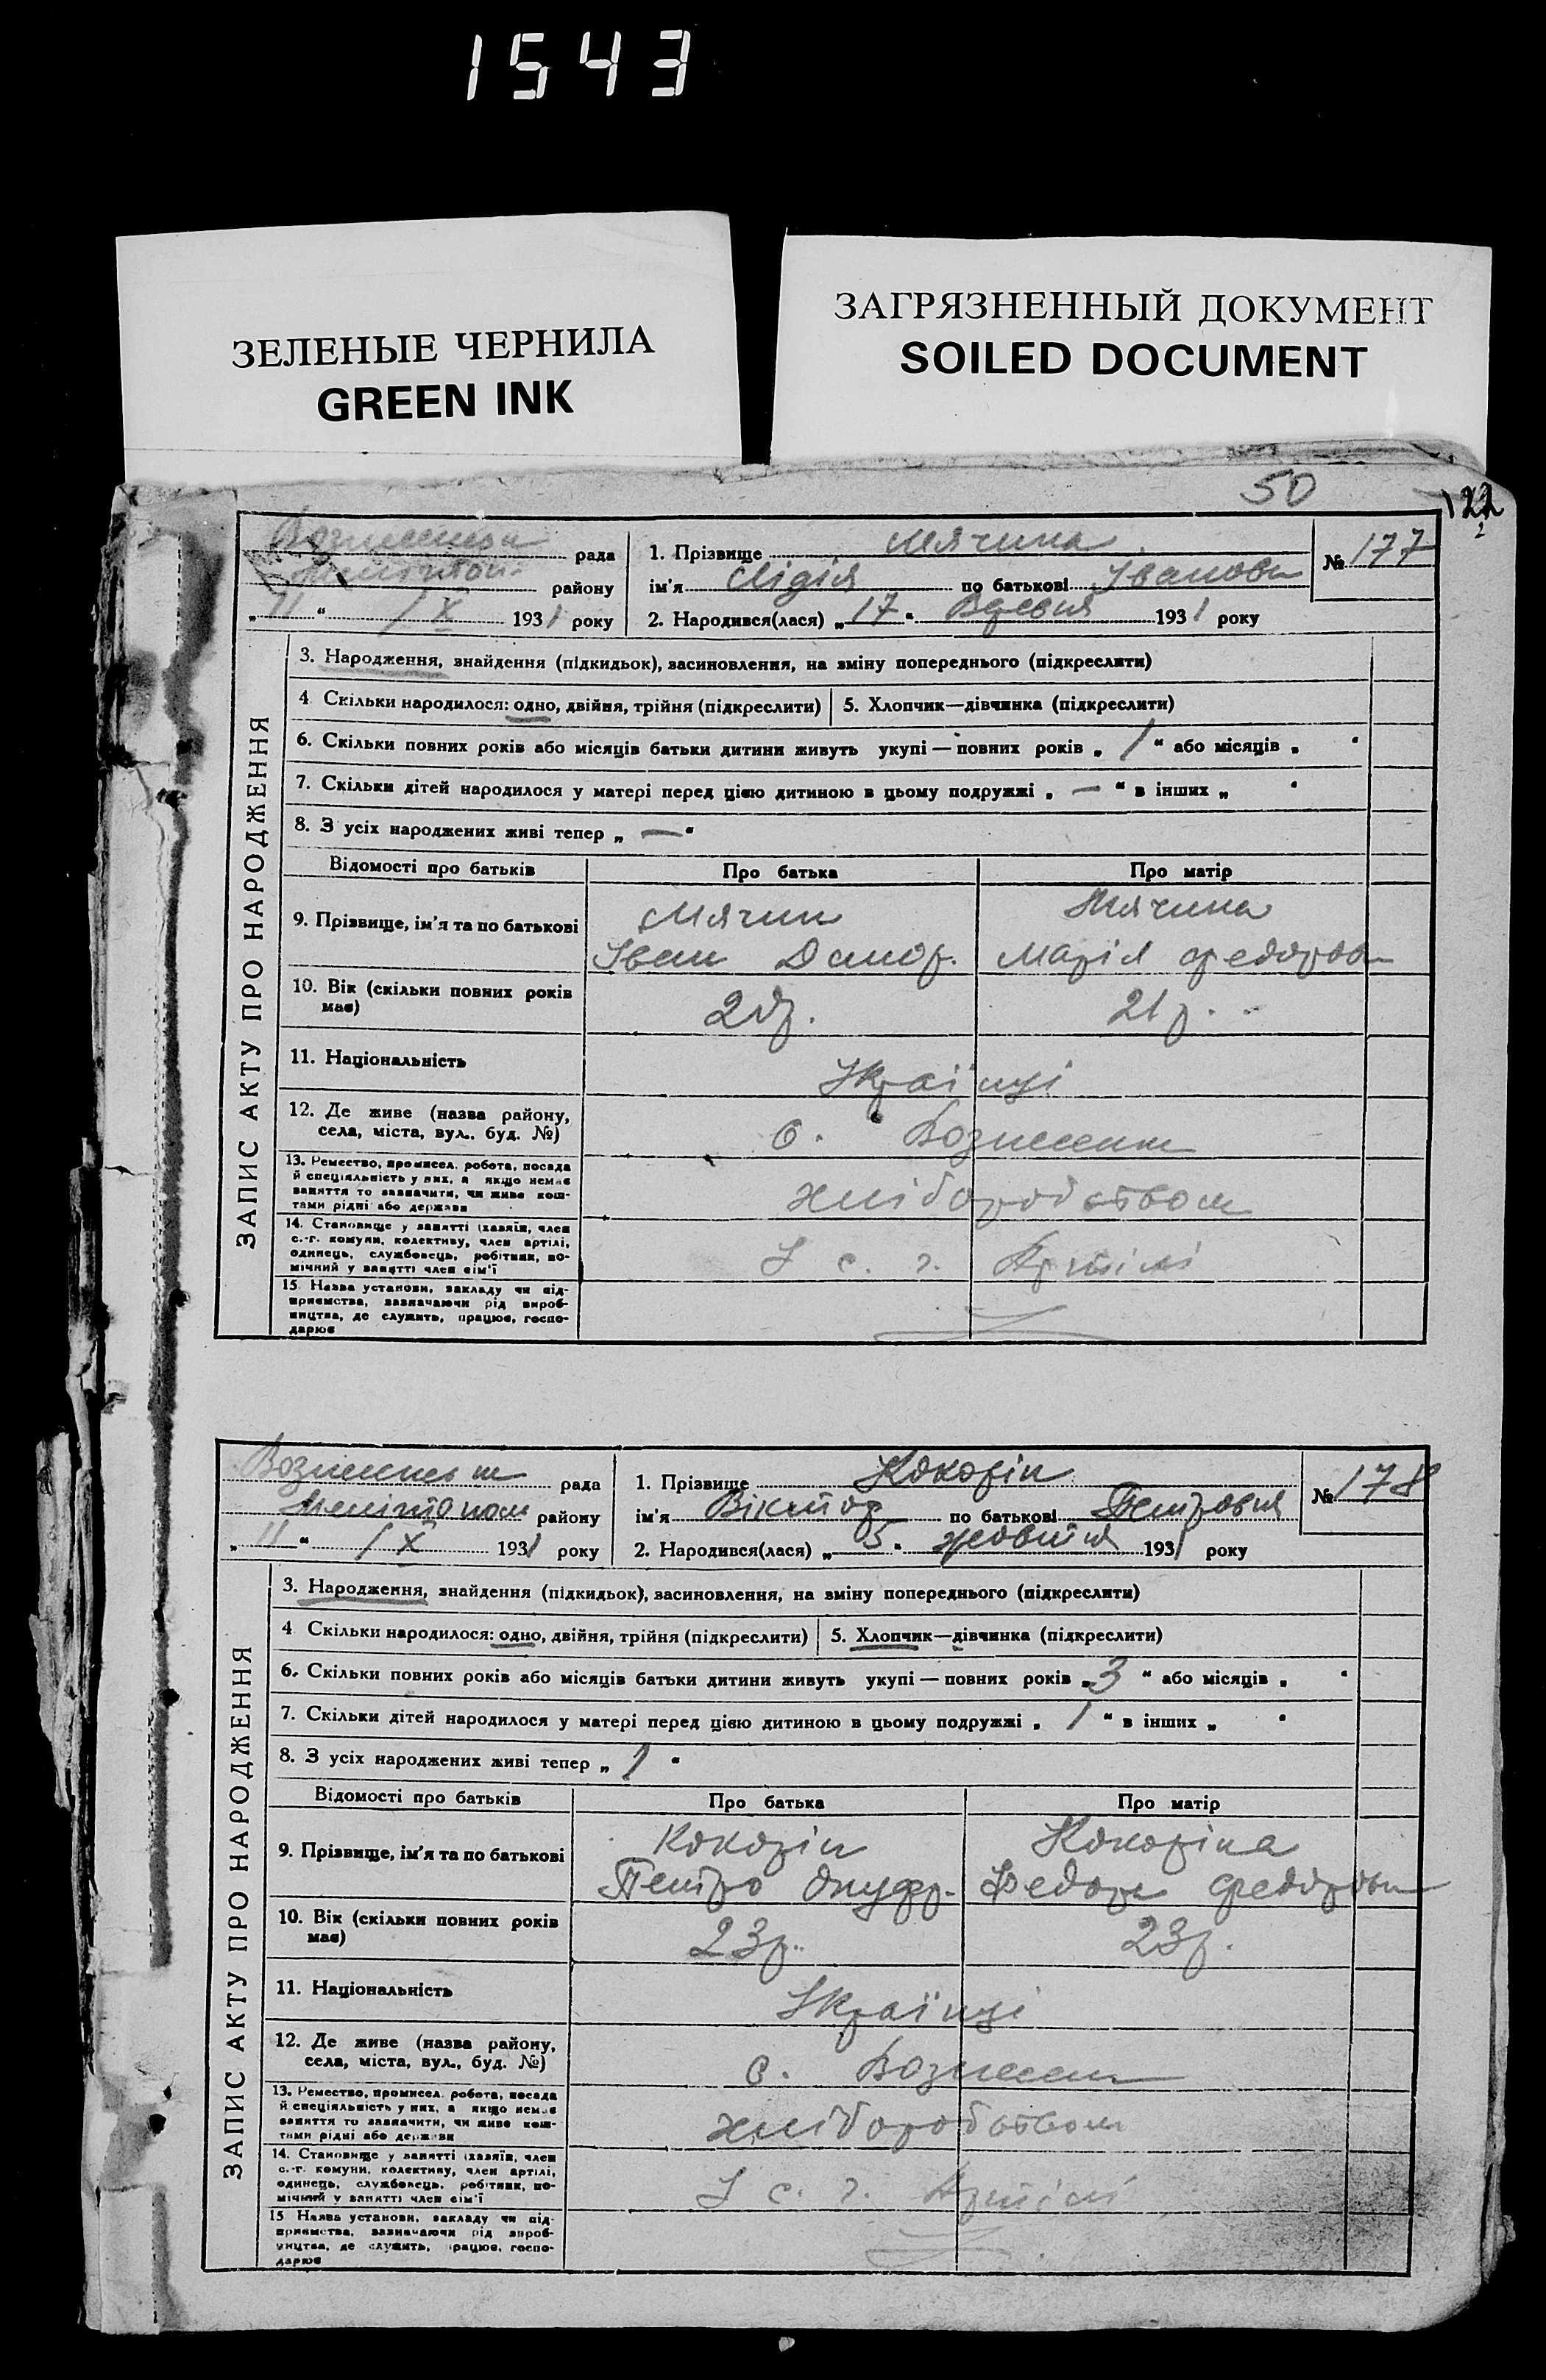 1543
ЗЕЛЕНЫЕ ЧЕРНИЛА
GREEN INK
ЗАГРЯЗНЕННЫЙ ДОКУМЕНТ
SOILED DOCUMENT
50
122
2
рада
району
„11“ IX 1931 року
1. Прізвище Мячина
ім'я Лідія по батькові Івановн
2. Народився(лася) „17“ 1931 року
№ 177
ЗАПИС АКТУ ПРО НАРОДЖЕННЯ
3. Народження, знайдення (підкидьок), засиновлення, на зміну попереднього (підкреслити)
4 Скільки народилося: одно, двійня, трійня (підкреслити) 5. Хлопчик—дівчинка (підкреслити)
6. Скільки повних років або місяців батьки дитини живуть укупі — повних років „ 1 “ або місяців „ “
7. Скільки дітей народилося у матері перед цією дитиною в цьому подружжі „ — “ в інших „ “
8. З усіх народжених живі тепер „ — “
Відомості про батьків Про батька Про матір
9. Прізвище, ім'я та по батькові
Мячин
Іван
Мячина
Марія Федоровн
10. Вік (скільки повних років має)
21 р.
11. Національність
Українці
12. Де живе (назва району,
села, міста, вул., буд. №)
с. Вознесен
13. Ремество, промисел, робота, посада
й спеціяльність у них, а якщо немає
заняття то зазначити, чи живе кош-
тами рідні або держави
хліборобством
14. Становище у занятті (хазяїн, член
с.-г. комуни, колективу, член артілі,
одинець, службовець, робітник, по-
мічний у занятті член сім'ї
У с. г. Артілі
15. Назва установи, закладу чи під-
приємства, зазначаючи рід вироб-
ництва, де служить, працює, госпо-
дарює
рада
району
„11“ IX 1931 року
1. Прізвище Кокорін
ім'я Віктор по батькові Петровия
2. Народився(лася) „5“ жовтня 1931 року
№ 178
ЗАПИС АКТУ ПРО НАРОДЖЕННЯ
3. Народження, знайдення (підкидьок), засиновлення, на зміну попереднього (підкреслити)
4 Скільки народилося: одно, двійня, трійня (підкреслити) 5. Хлопчик—дівчинка (підкреслити)
6. Скільки повних років або місяців батьки дитини живуть укупі — повних років „ 3 “ або місяців „ “
7. Скільки дітей народилося у матері перед цією дитиною в цьому подружжі „ 1 “ в інших „ “
8. З усіх народжених живі тепер „ 1 “
Відомості про батьків Про батька Про матір
9. Прізвище, ім'я та по батькові
Кокорін
Петро Онуфр.
Кокоріна
Федора Федоровн
10. Вік (скільки повних років має)
23 р.
23 р.
11. Національність
Українці
12. Де живе (назва району,
села, міста, вул., буд. №)
с. Вознесен
13. Ремество, промисел, робота, посада
й спеціяльність у них, а якщо немає
заняття то зазначити, чи живе кош-
тами рідні або держави
хліборобством
14. Становище у занятті (хазяїн, член
с.-г. комуни, колективу, член артілі,
одинець, службовець, робітник, по-
мічний у занятті член сім'ї
У с. г. Артілі
15 Назва установи, закладу чи під-
приємства, зазначаючи рід вироб-
ництва, де служить, працює, госпо-
дарює